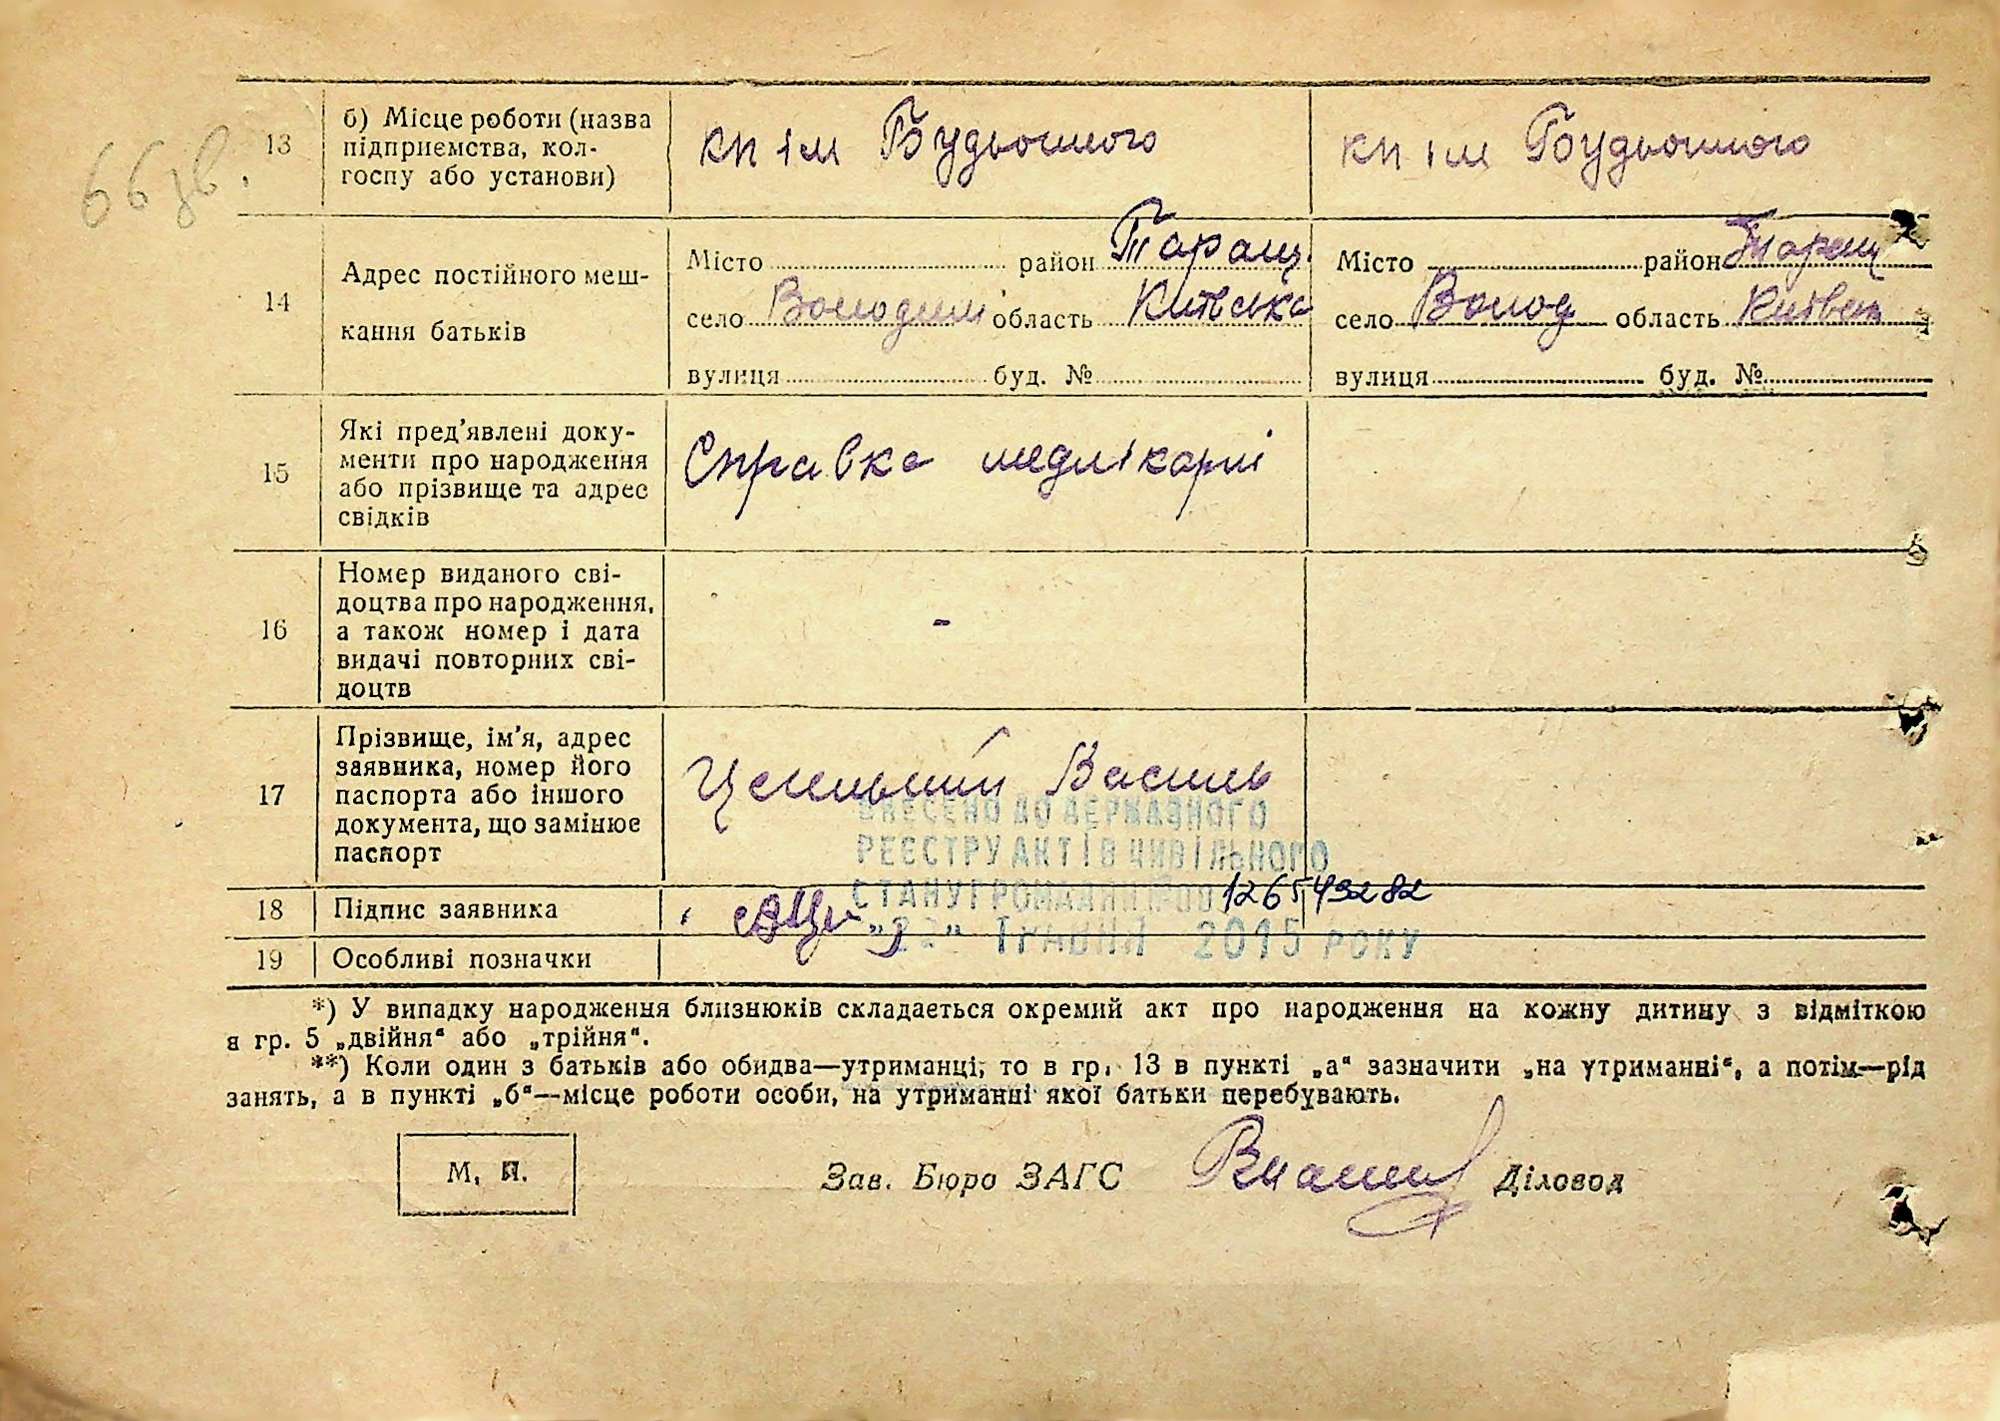 66 зв.
13 б) Місце роботи (назва підприємства, колгоспу або установи)
підприємства, кол-
госпу або установи)
кп ім Будьонного
кп ім Будьонного
14
Адрес постійного меш-
кання батьків
Місто район Таращ.
село Володим область Київська
вулиця буд. №
Місто район Таращ
село Волод область Київськ
вулиця буд. №
15
Які пред'явлені доку-
менти про народження
або прізвище та адрес
свідків
Справка медлікарні
16
Номер виданого сві-
доцтва про народження,
а також номер і дата
видачі повторних сві-
доцтв
-
17
Прізвище, ім'я, адрес
заявника, номер його
паспорта або іншого
документа, що замінює
паспорт
Василь
ВНЕСЕНО ДО ДЕРЖАВНОГО
РЕЄСТРУ АКТІВ ЦИВІЛЬНОГО
СТАНУ ГРОМАДЯН №00126543282
„22" ТРАВНЯ 2015 РОКУ
18 Підпис заявника
19 Особливі позначки
*) У випадку народження близнюків складається окремий акт про народження на кожну дитину з відміткою
в гр. 5 „двійня" або „трійня".
**) Коли один з батьків або обидва—утриманці, то в гр. 13 в пункті „а" зазначити „на утриманні", а потім—рід
занять, а в пункті „б"—місце роботи особи, на утриманні якої батьки перебувають.
М. П.
Зав. Бюро ЗАГС Діловод